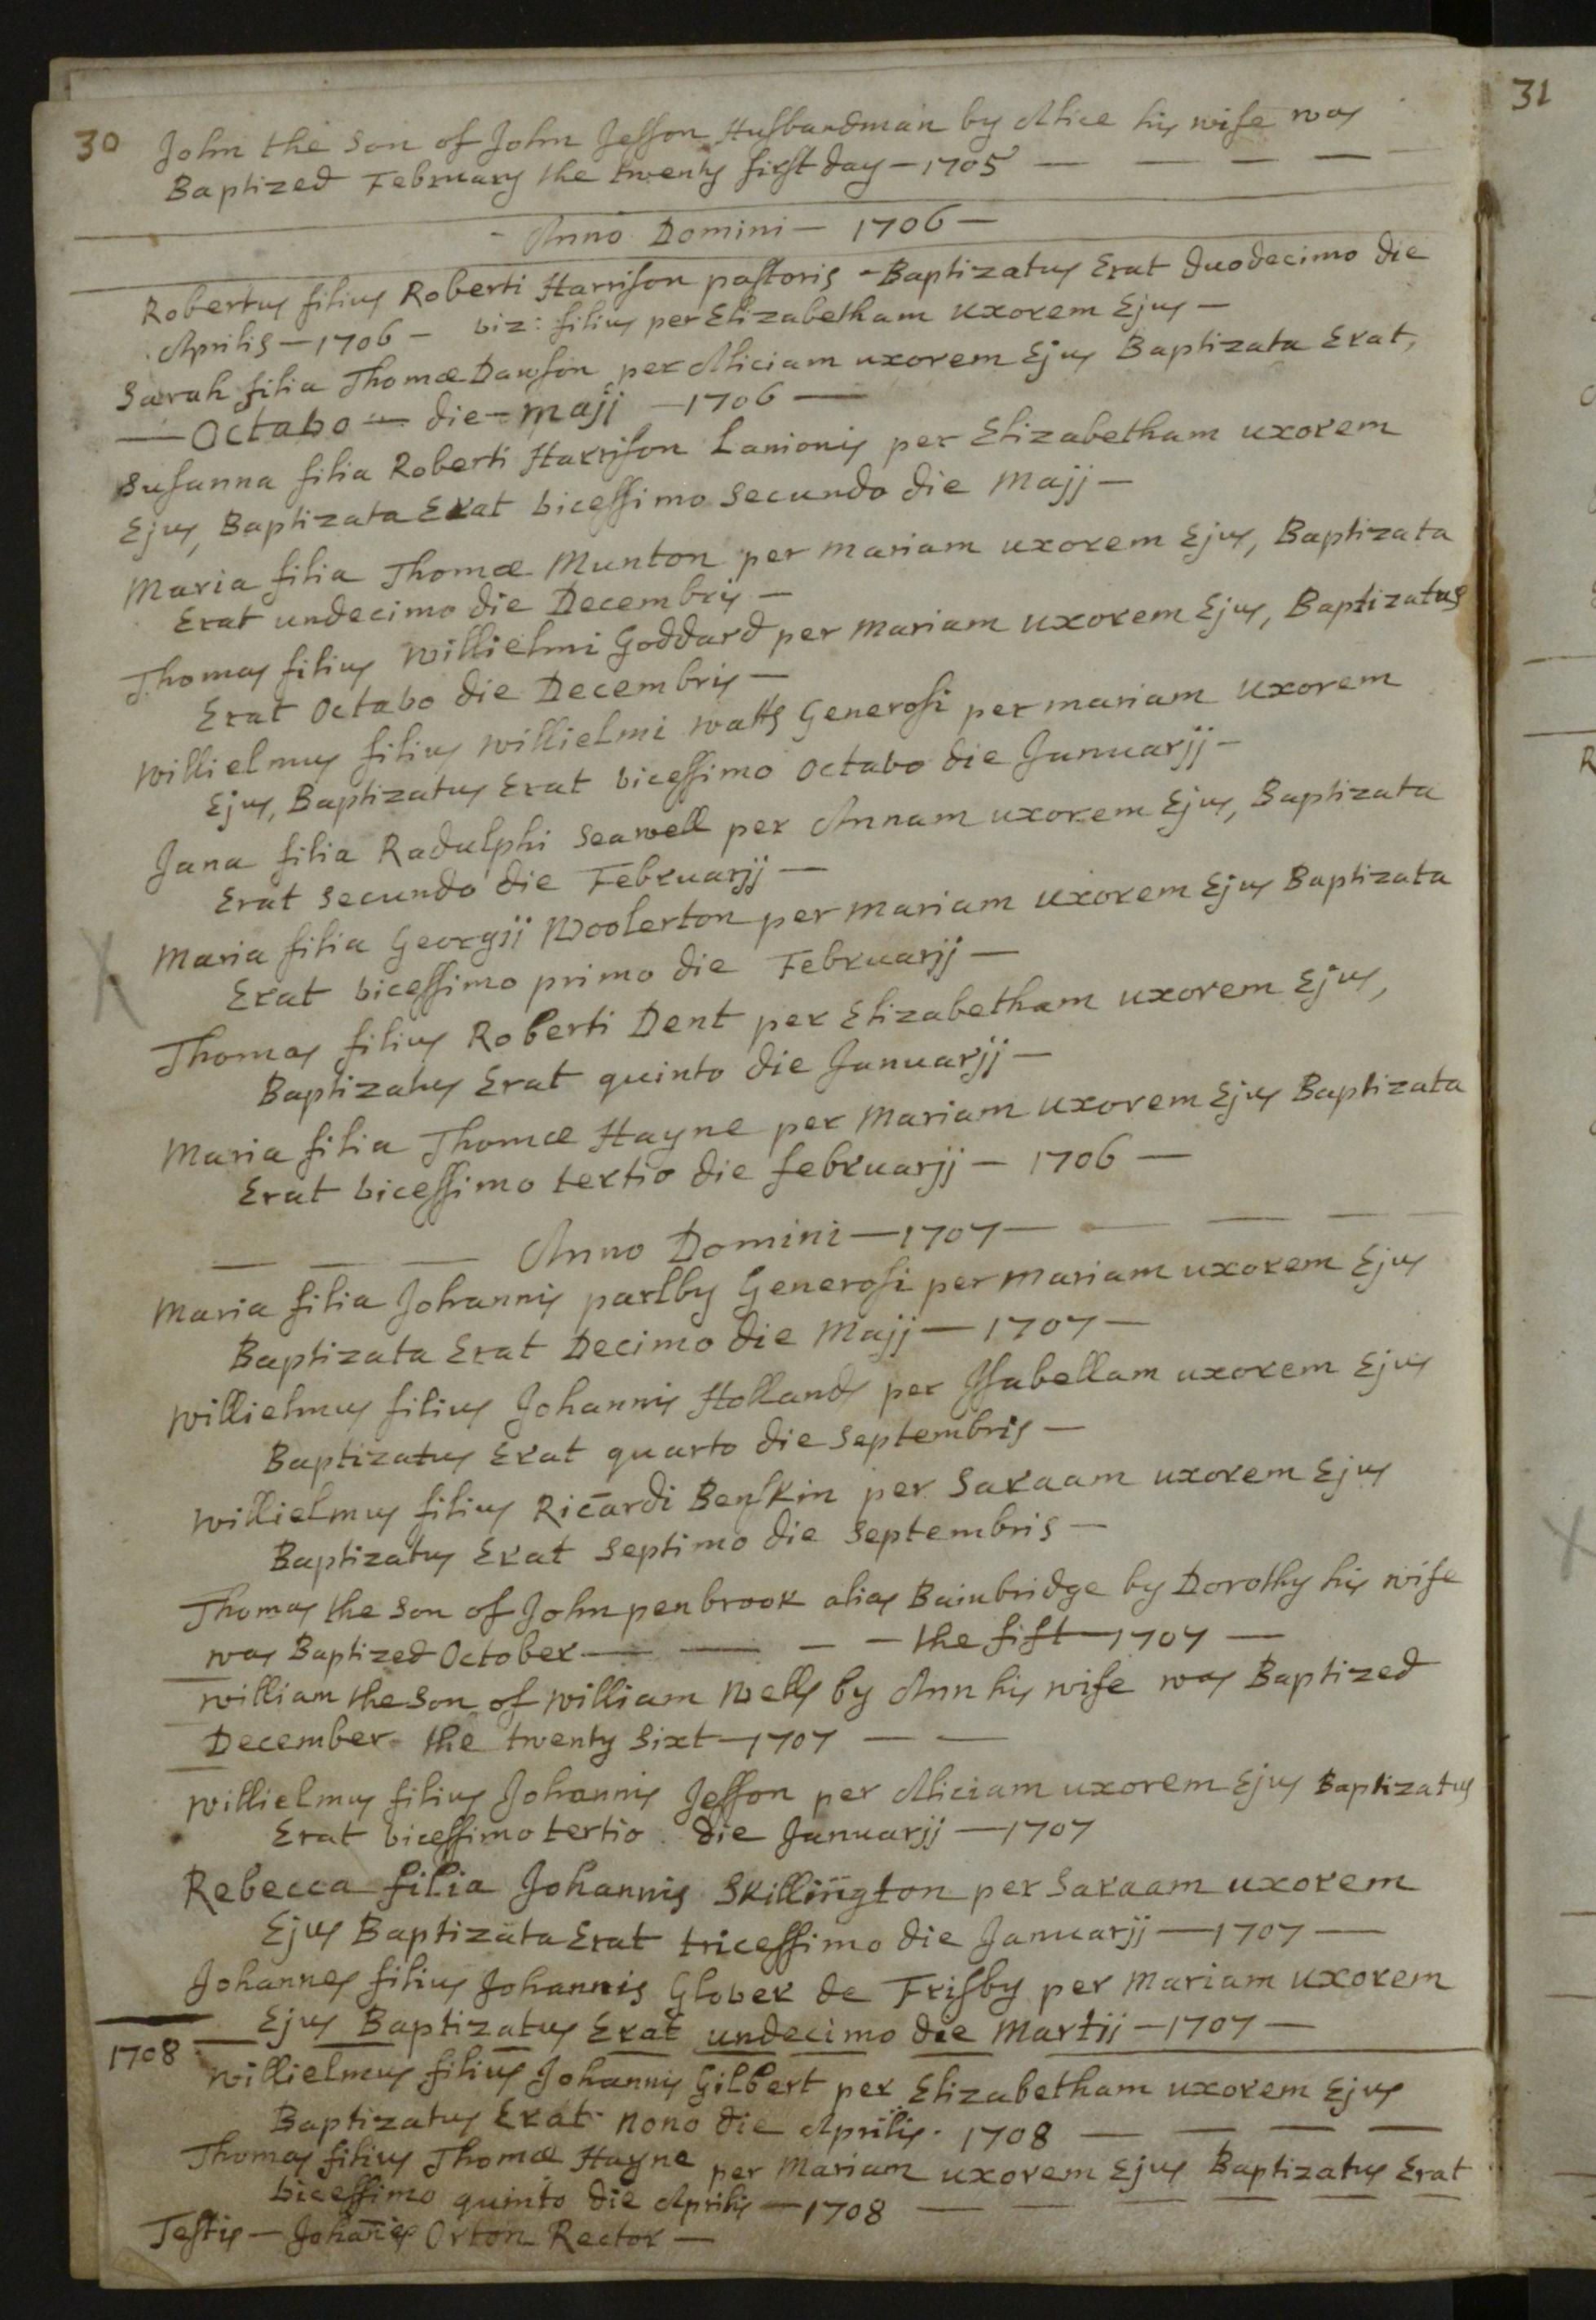 30
John the Son of John Jesson Husbandman by Alice his wife was
Baptized February the twenty first day — 1705 — — — —
- Anno Domini — 1706 —
Robertus filius Roberti Harrison pastoris - Baptizatus Erat duodecimo die
Aprilis — 1706 — viz: filius per Elizabetham uxorem Ejus —
Sarah filia Thomæ Dawson per Aliciam uxorem Ejus Baptizata Erat,
— Octavo — die — Maij — 1706 —
Susanna filia Roberti Harrison Lanionis per Elizabetham uxorem
Ejus, Baptizata Erat vicessimo Secundo die Maij —
Maria filia Thomæ Munton per Mariam uxorem Ejus, Baptizata
Erat undecimo die Decembris —
Thomas filius Willielmi Goddard per Mariam uxorem Ejus, Baptizatus
Erat Octavo die Decembris —
Willielmus filius Willielmi Watts Generosi per Mariam uxorem
Ejus, Baptizatus Erat vicessimo Octavo die Januarij —
Jana filia Radulphi Seawell per Annam uxorem Ejus, Baptizata
Erat Secundo die Februarij —
Maria filia Georgii Woolerton per Mariam uxorem Ejus Baptizata
X
Erat vicessimo primo die Februarij —
Thomas filius Roberti Dent per Elizabetham uxorem Ejus,
Baptizatus Erat quinto die Januarij —
Maria filia Thomæ Hayne per Mariam uxorem Ejus Baptizata
Erat vicessimo tertio die februarij — 1706 —
— — — Anno Domini — 1707 — — — — —
Maria filia Johannis parlby Generosi per Mariam uxorem Ejus
Baptizata Erat Decimo die Maij — 1707 —
Willielmus filius Johannis Holland per Isabellam uxorem Ejus
Baptizatus Erat quarto die Septembris —
Willielmus filius Ricardi Benskin per Saraam uxorem Ejus
Baptizatus Erat Septimo die Septembris —
Thomas the Son of John penbrook alias Bainbridge by Dorothy his wife
was Baptized October — — — — the fift — 1707 —
William the Son of William Wells by Ann his wife was Baptized
December the twenty Sixt — 1707 — —
Willielmus filius Johannis Jesson per Aliciam uxorem Ejus Baptizatus
Erat vicessimo tertio die Januarij — 1707
Rebecca filia Johannis Skillington per Saraam uxorem
Ejus Baptizata Erat tricessimo die Januarij — 1707 —
Johannes filius Johannis Glover de Frisby per Mariam uxorem
Ejus Baptizatus Erat undecimo die Martii — 1707 —
1708
Willielmus filius Johannis Gilbert per Elizabetham uxorem Ejus
Baptizatus Erat nono die Aprilis. 1708 — — — —
Thomas filius Thomæ Hayne per Mariam uxorem Ejus Baptizatus Erat
vicessimo quinto die Aprilis — 1708 — — — — — —
Testis — Johanes Orton Rector —
31
R
X